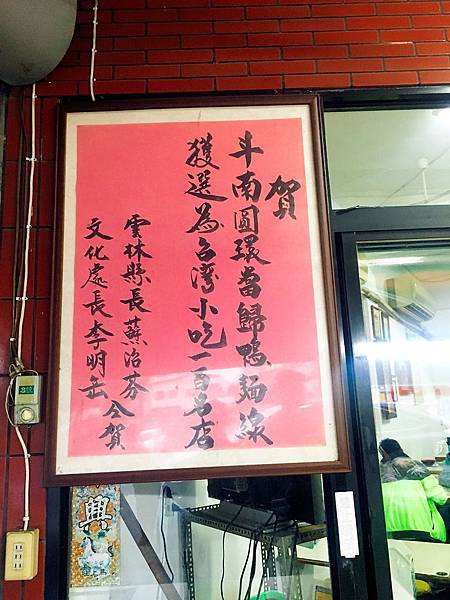 賀
斗南圓環當歸鴨麵線
獲選為台灣小吃一百名店
雲林縣長蘇治芬
文化處長李明岳 仝賀
興